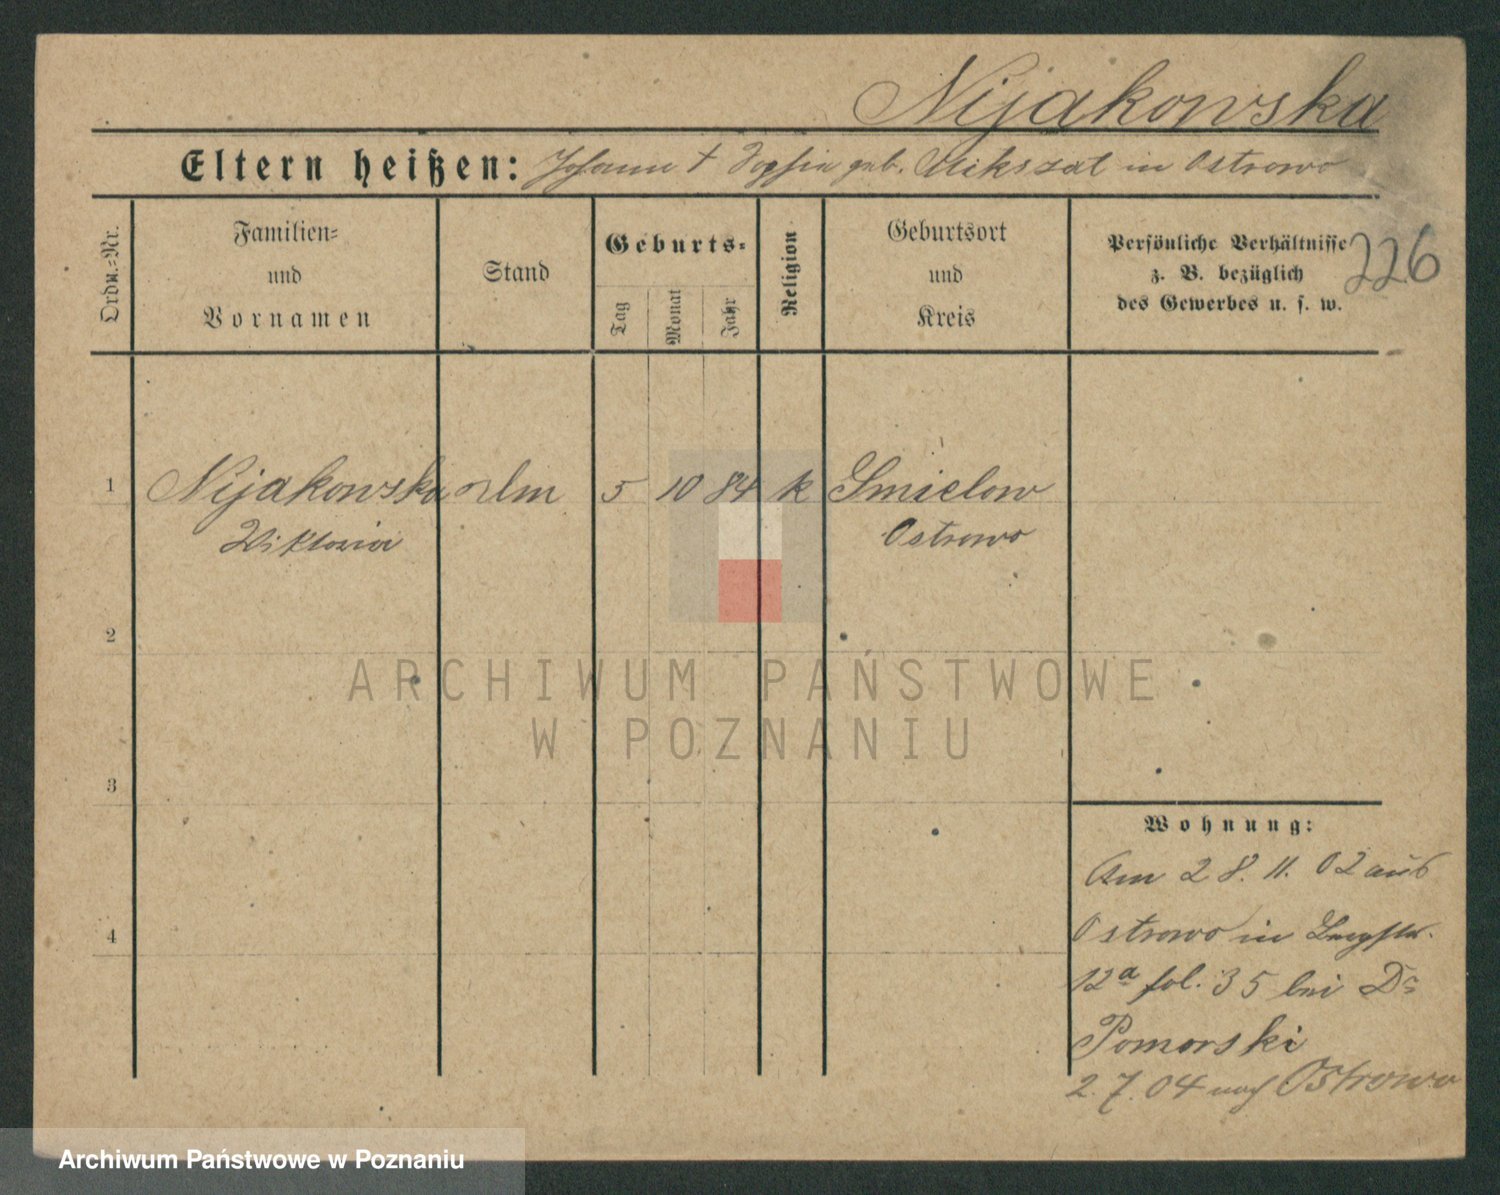 Nijakowska
Eltern heißen: Johann † Sophia geb. Mikszat in Ostrowo
Ordn.-Nr.
Familien-
und
Vornamen
Stand
Geburts-
Tag
Monat
Jahr
Religion
Geburtsort
und
Kreis
Persönliche Verhältnisse
z. B. bezüglich
des Gewerbes u. s. w.
226
1 Nijakowska 5 10 84 k Smielow
Wiktoria Ostrowo
2
3
4
ARCHIWUM PAŃSTWOWE
W POZNANIU
Wohnung:
Am 28. 11. 02 aus
Ostrowo in
12a fol. 35 bei Dr
Pomorski
2. 7. 04 nach Ostrowo
Archiwum Państwowe w Poznaniu